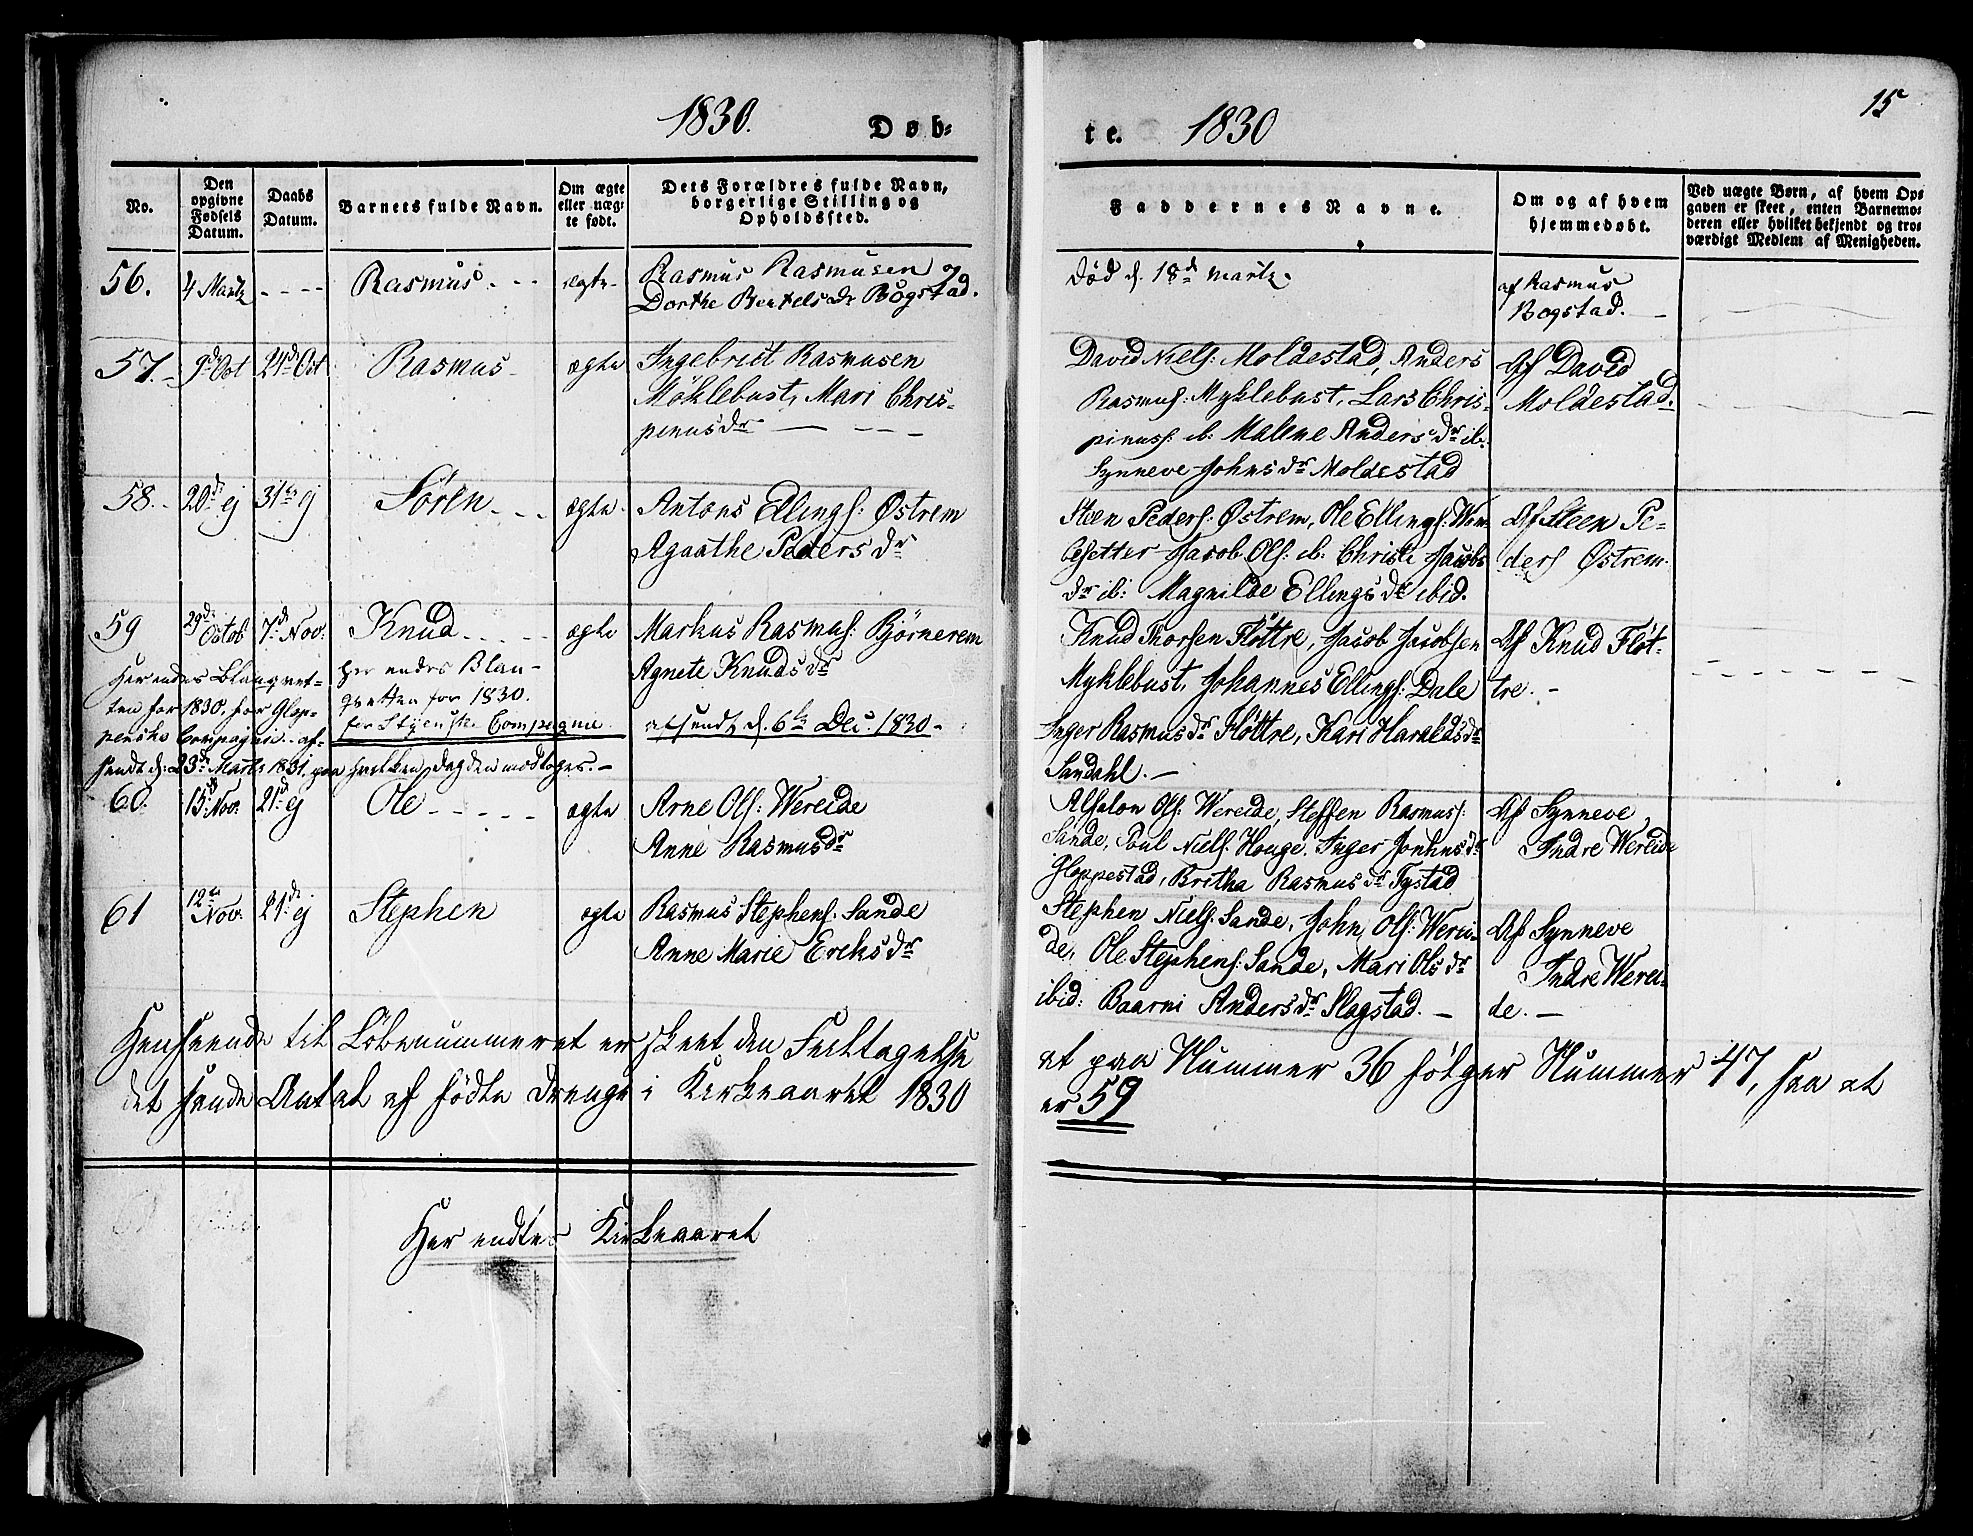 15
1830. Døb=
te. 1830
No.
Den opgivne Fødsels Datum.
Daabs Datum.
Barnets fulde Navn.
Om ægte eller uægte født.
Dets Forældres fulde Navn, borgerlige Stilling og Opholdssted.
Faddernes Navne.
Om og af hvem hjemmedøbt.
Ved uægte Børn, af hvem Opgaven er skeet, enten Barnemoderen eller hvilket bekjendt og troværdigt Medlem af Menigheden.
56. 4 Martz - - - - Rasmus - - - ægte - Rasmus Rasmusen
Dorthe Bertels dr Bogstad.
Død d. 18d martz.
af Rasmus
Bogstad. -
57. - 9d Oct 24d Oct Rasmus - ægte Ingebrict Rasmusen
Möklebust, Mari Chris-
pinusdr
David Niels: Moldestad, Anders
Rasmus: Myklebust, Lars Chris-
pinuss: ib: Malene Andersdr ib.
Synneve Johnsdr Moldestad
Af David
Moldestad.
58. - 20d ej 31te ej Sören - - - ægte Antons Ellings: Østrem
Agaathe Pedersdr
Steen Peders: Østrem, Ole Ellings: Wem
besetter Jacob Ols: ib. Christi Jacobs
dr ib: Magnilde Ellingsdr ibid.
Af Steen Pe-
ders Østrem.
59 29d Octob 7d Nov: Knud - - - ægte Markus Rasmus: Bjørnerem
Agnete Knudsdr
afsendt d. 6te Dec: 1830 -
Her endes Blanqvet-
ten for 1830, for Glop-
penske Compagnie - af-
sendt d: 23d Marts 1831, paa hvilken Dag den modtoges. -
Her endes Blan-
qvetten for 1830.
for Compagnie
Knud Thorsen Fløttre, Jacob Jacobsen
Myklebust, Johannes Ellings: Dale
Inger Rasmusdr Fløttre, Kari Haraldsdr
Sandahl. -
Af Knud Fløt-
tre. -
60. 15 Nov. 21d ej Ole - - - - - ægte Arne Ols: Wereide
Anne Rasmusdr
Absalon Ols: Wereide, Steffen Rasmuss:
Sande, Poul Niels. Houge. Inger
Gloppestad, Britha Rasmusdr Tystad
Af Synneve
Indre Wereide
61 12te Nov. 21d ej Stephen ægte Rasmus Stephens: Sande
Anne Marie Ericksdr
Stephen Niels: Sande, John Ols: Werei-
de, Ole Stephens: Sande, Mari Olsdr
ibid: Baarni Andersdr Slagstad. -
Af Synneve
Indre Werei-
de. -
Henseende til Löbenummeret er skeet den Feiltagelse
at paa Nummer 36 følger Nummer 47, saa at
det sande Antal af födte Drenge i Kirkeaaret 1830
er 59
Her endtes Kirkeaaret